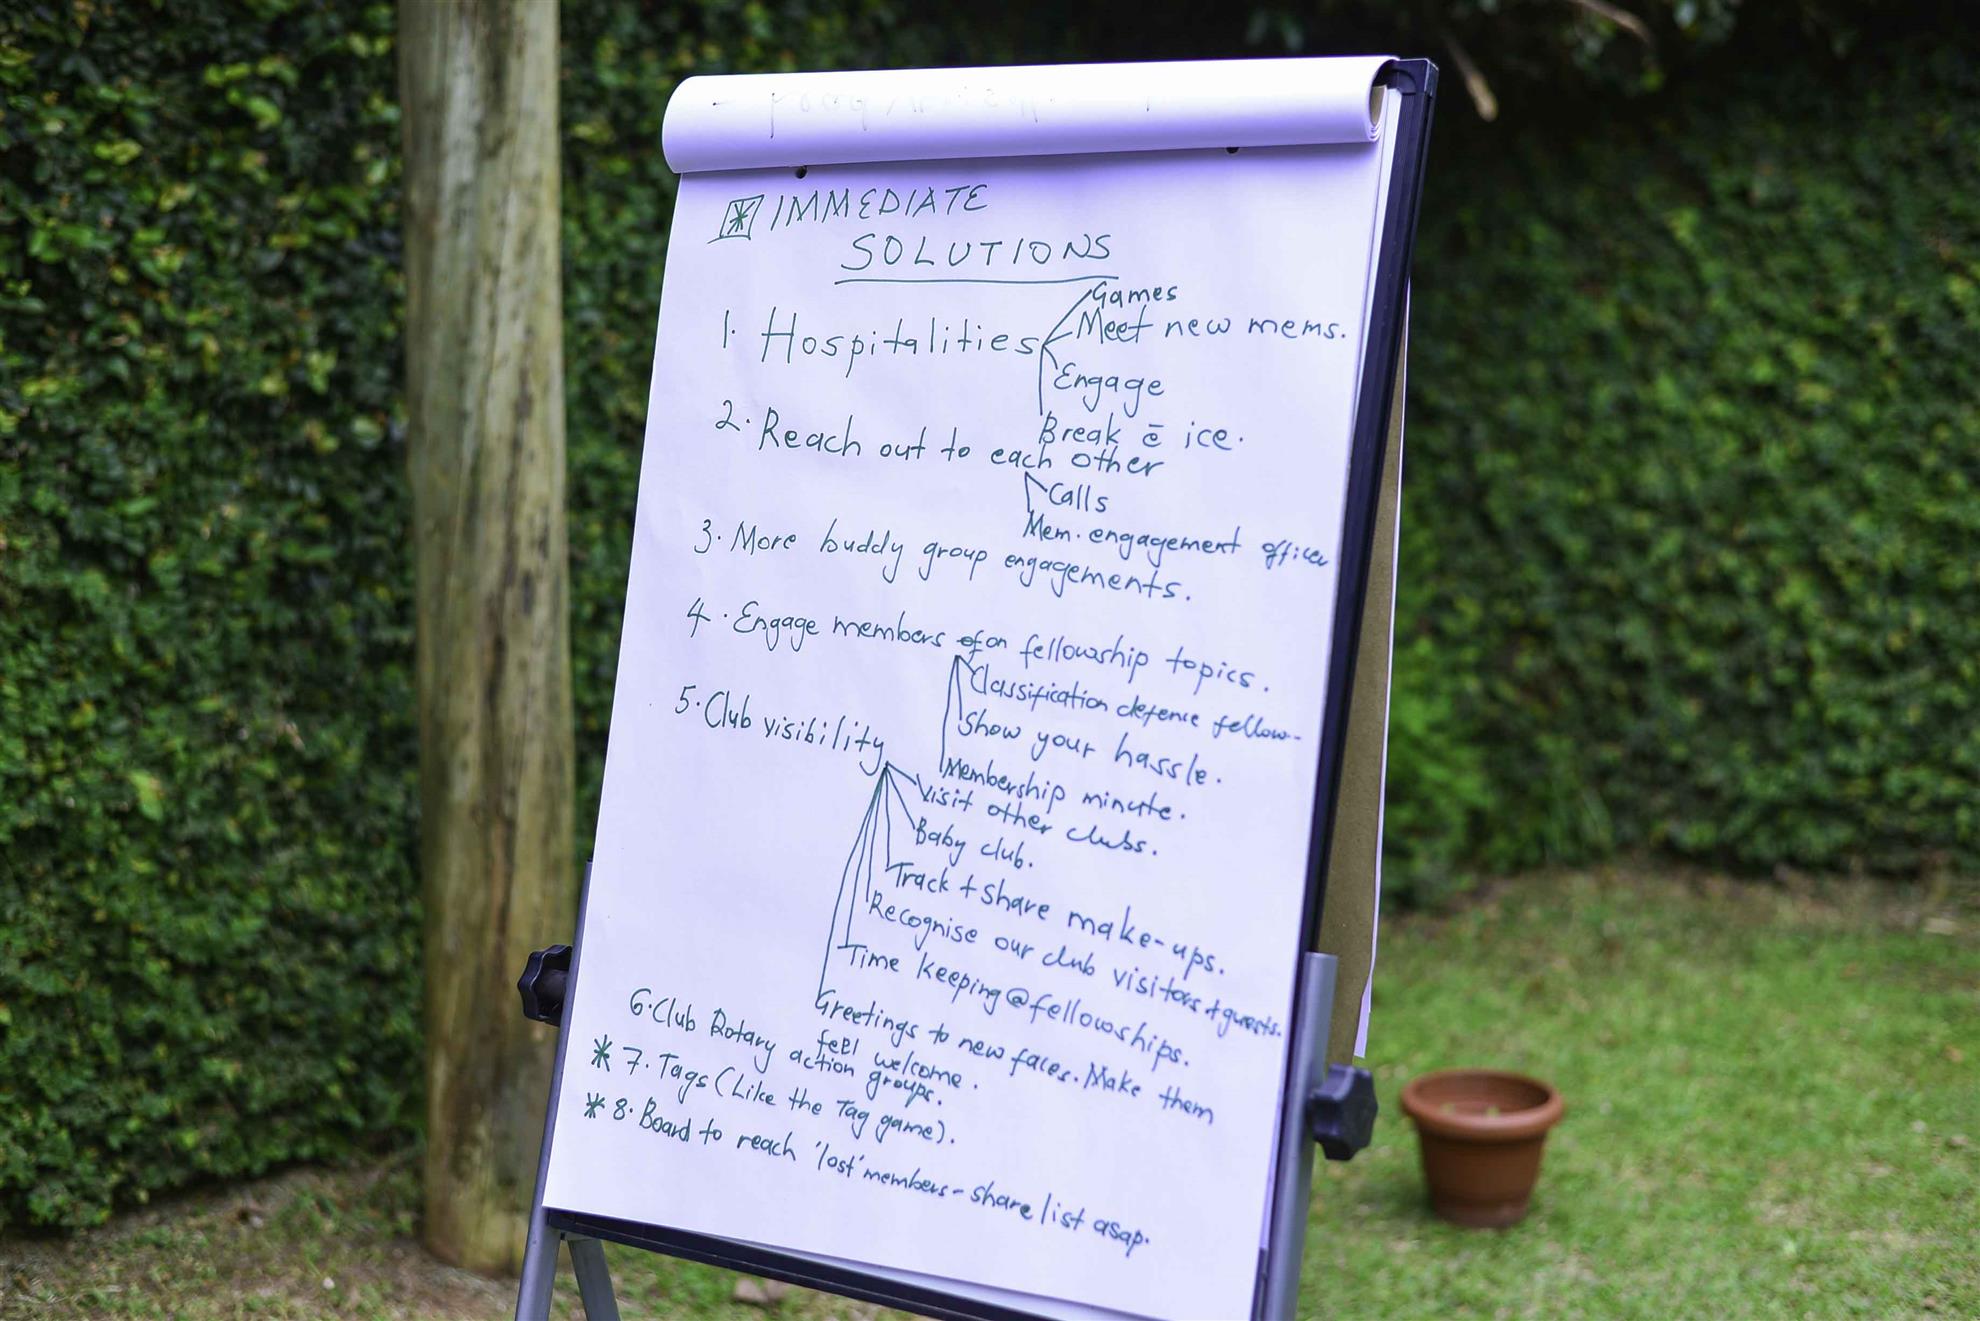 IMMEDIATE
SOLUTIONS
1. Hospitalities
Games
Meet new mems.
Engage
Break ē ice.
2. Reach out to each other
Calls
Mem. engagement officer
3. More buddy group engagements.
4. Engage members of on fellowship topics.
Classification defence fellow-
Show your hassle.
Membership minute.
5. Club visibility
Visit other clubs.
Baby club.
Track + share make-ups.
Recognise our club visitors + guests.
Time keeping @ fellowships.
Greetings to new faces. Make them
feel welcome.
6. Club Rotary action groups.
* 7. Tags (Like the Tag game).
* 8. Board to reach 'lost' members - share list asap.